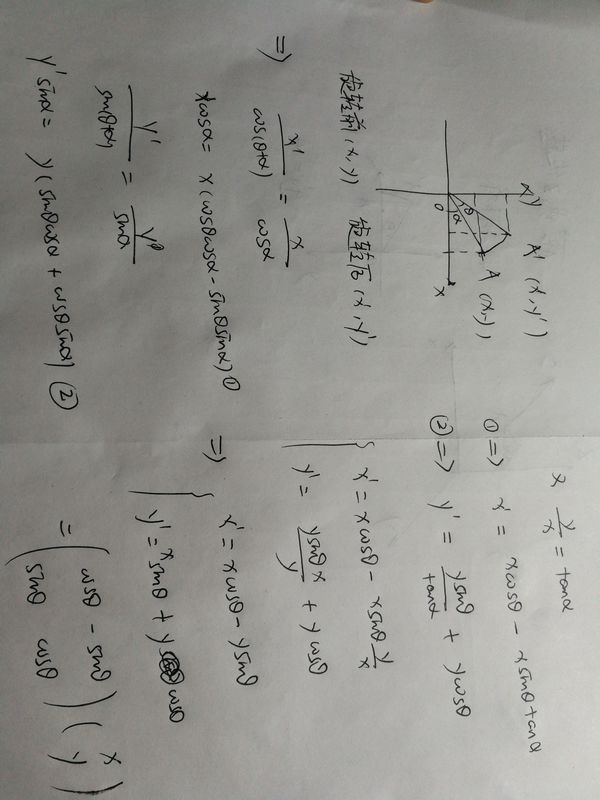 y
A' (x', y')
A (x, y)
θ
α
O
x
旋转前(x, y) 旋转后(x', y')
=> x'/cos(θ+α) = x/cosα
x'cosα = x(cosθcosα - sinθsinα) ①
y'/sin(θ+α) = y/sinα
y'sinα = y(sinθcosα + cosθsinα) ②
又 y/x = tanα
① => x' = xcosθ - xsinθtanα
② => y' = ysinθ/tanα + ycosθ
{ x' = xcosθ - xsinθ y/x
y' = ysinθ x/y + ycosθ
=> { x' = xcosθ - ysinθ
y' = xsinθ + ycosθ
= ( cosθ - sinθ ) ( x )
( sinθ cosθ ) ( y )